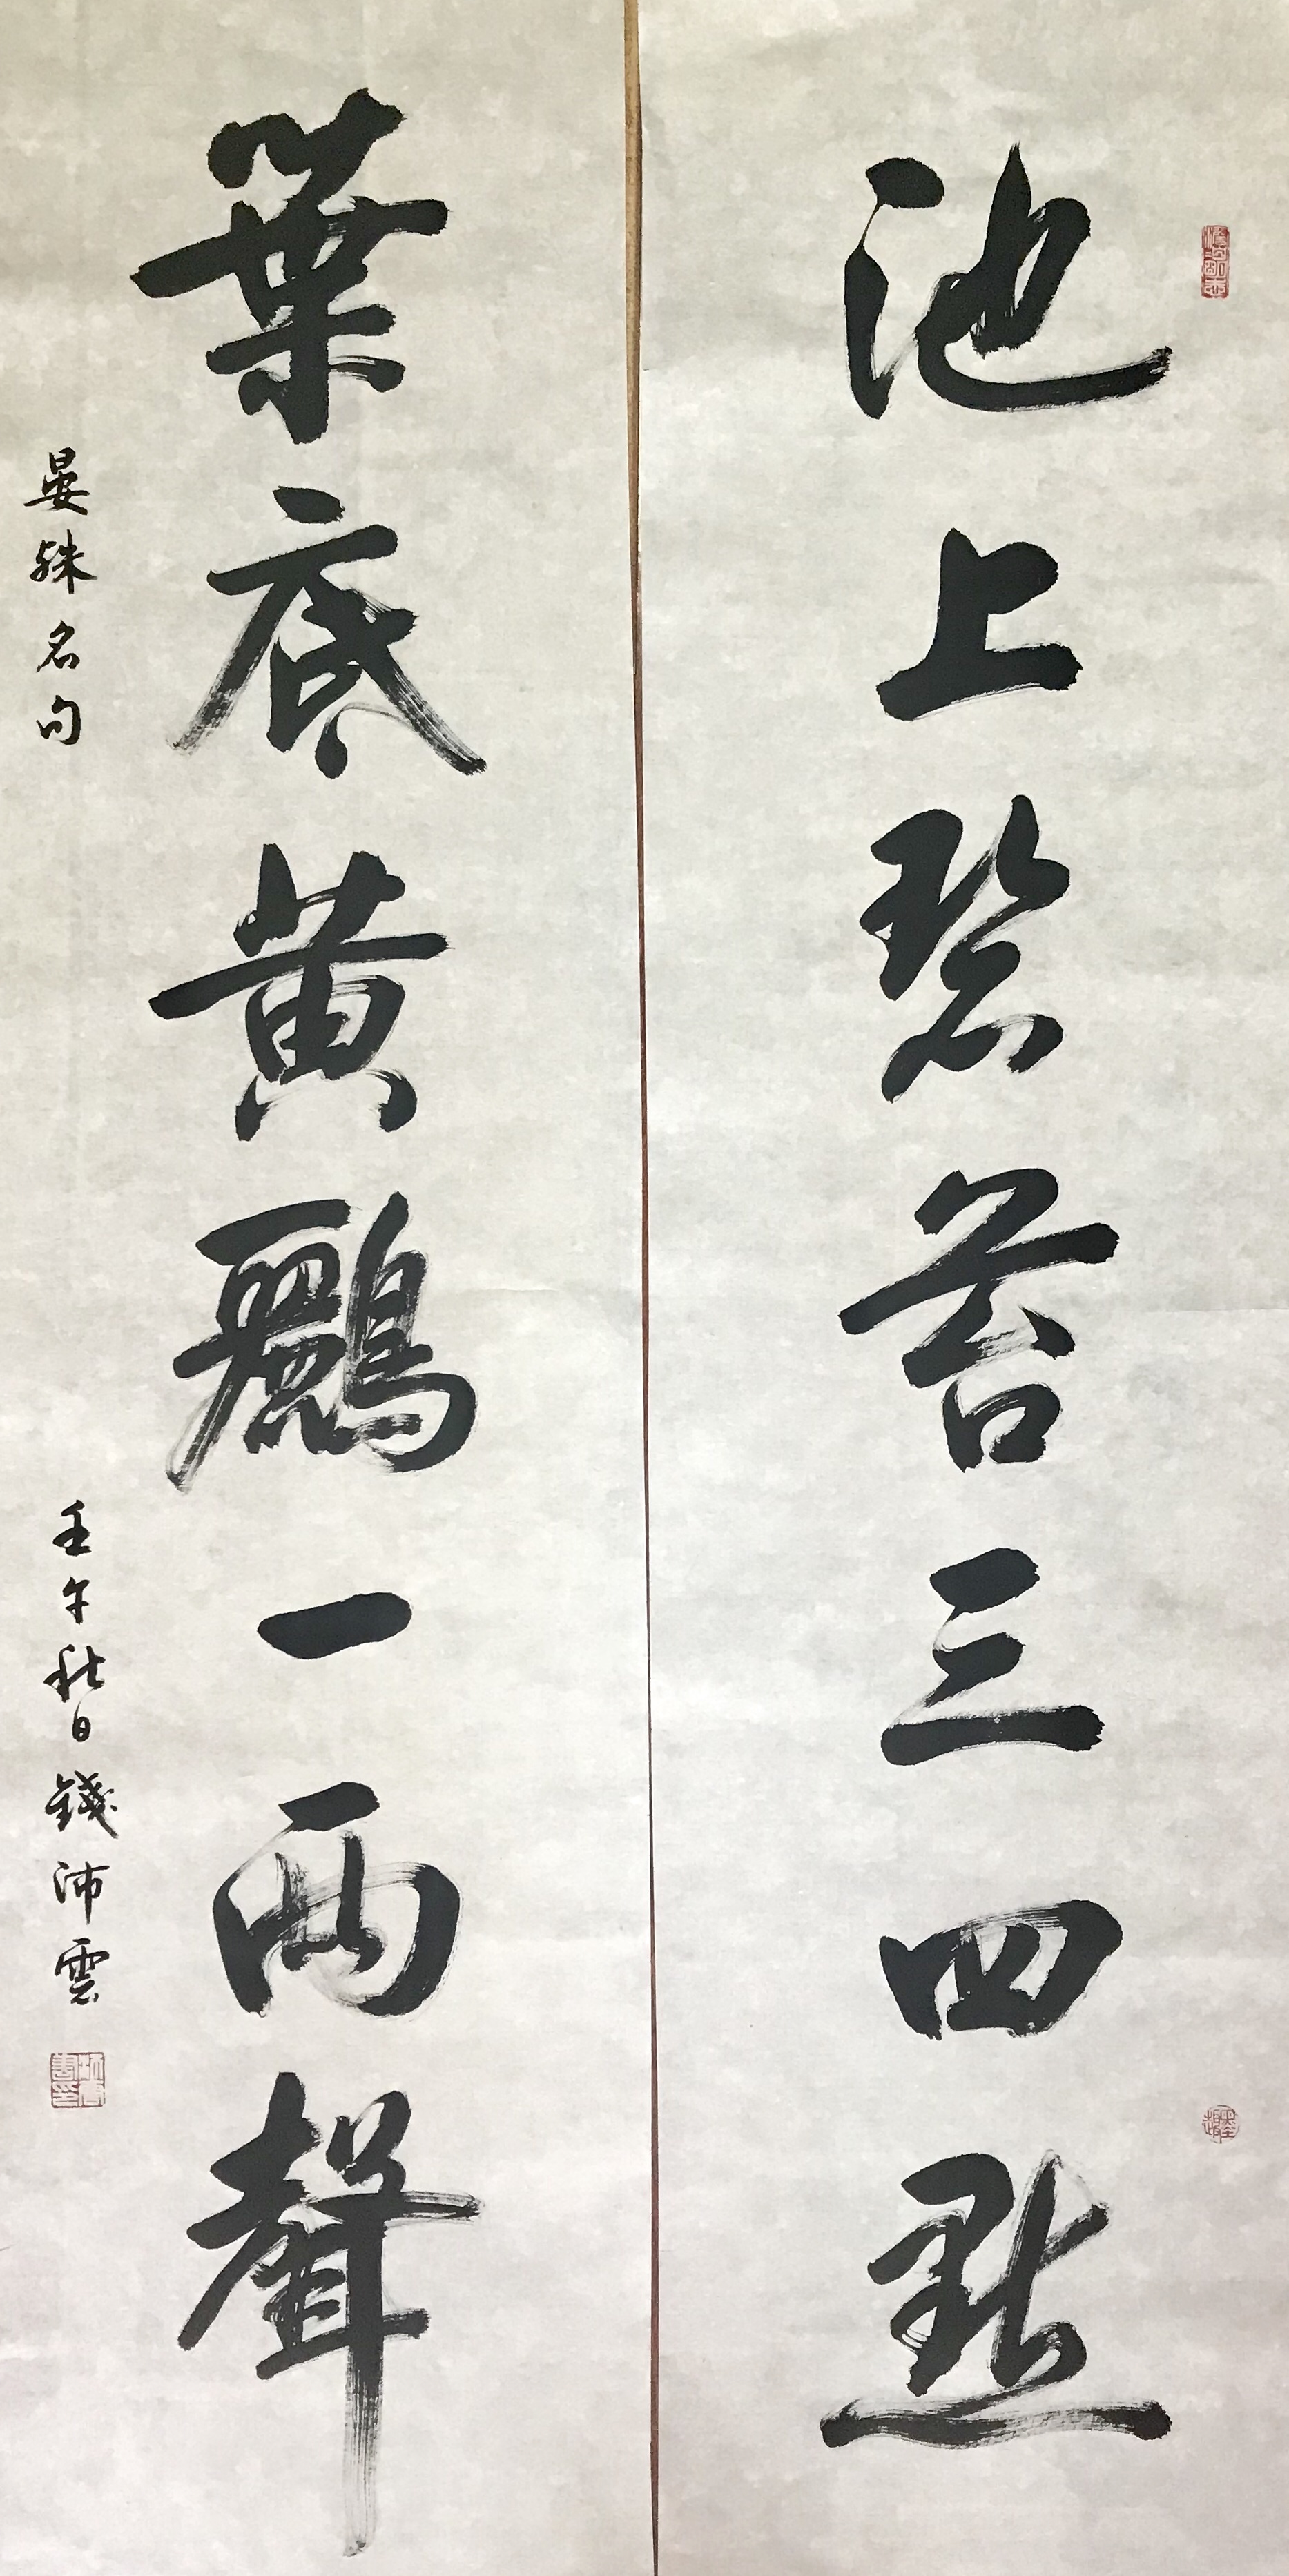 池上碧苔三四點
葉底黃鸝一兩聲
晏殊名句
壬午秋日錢沛雲